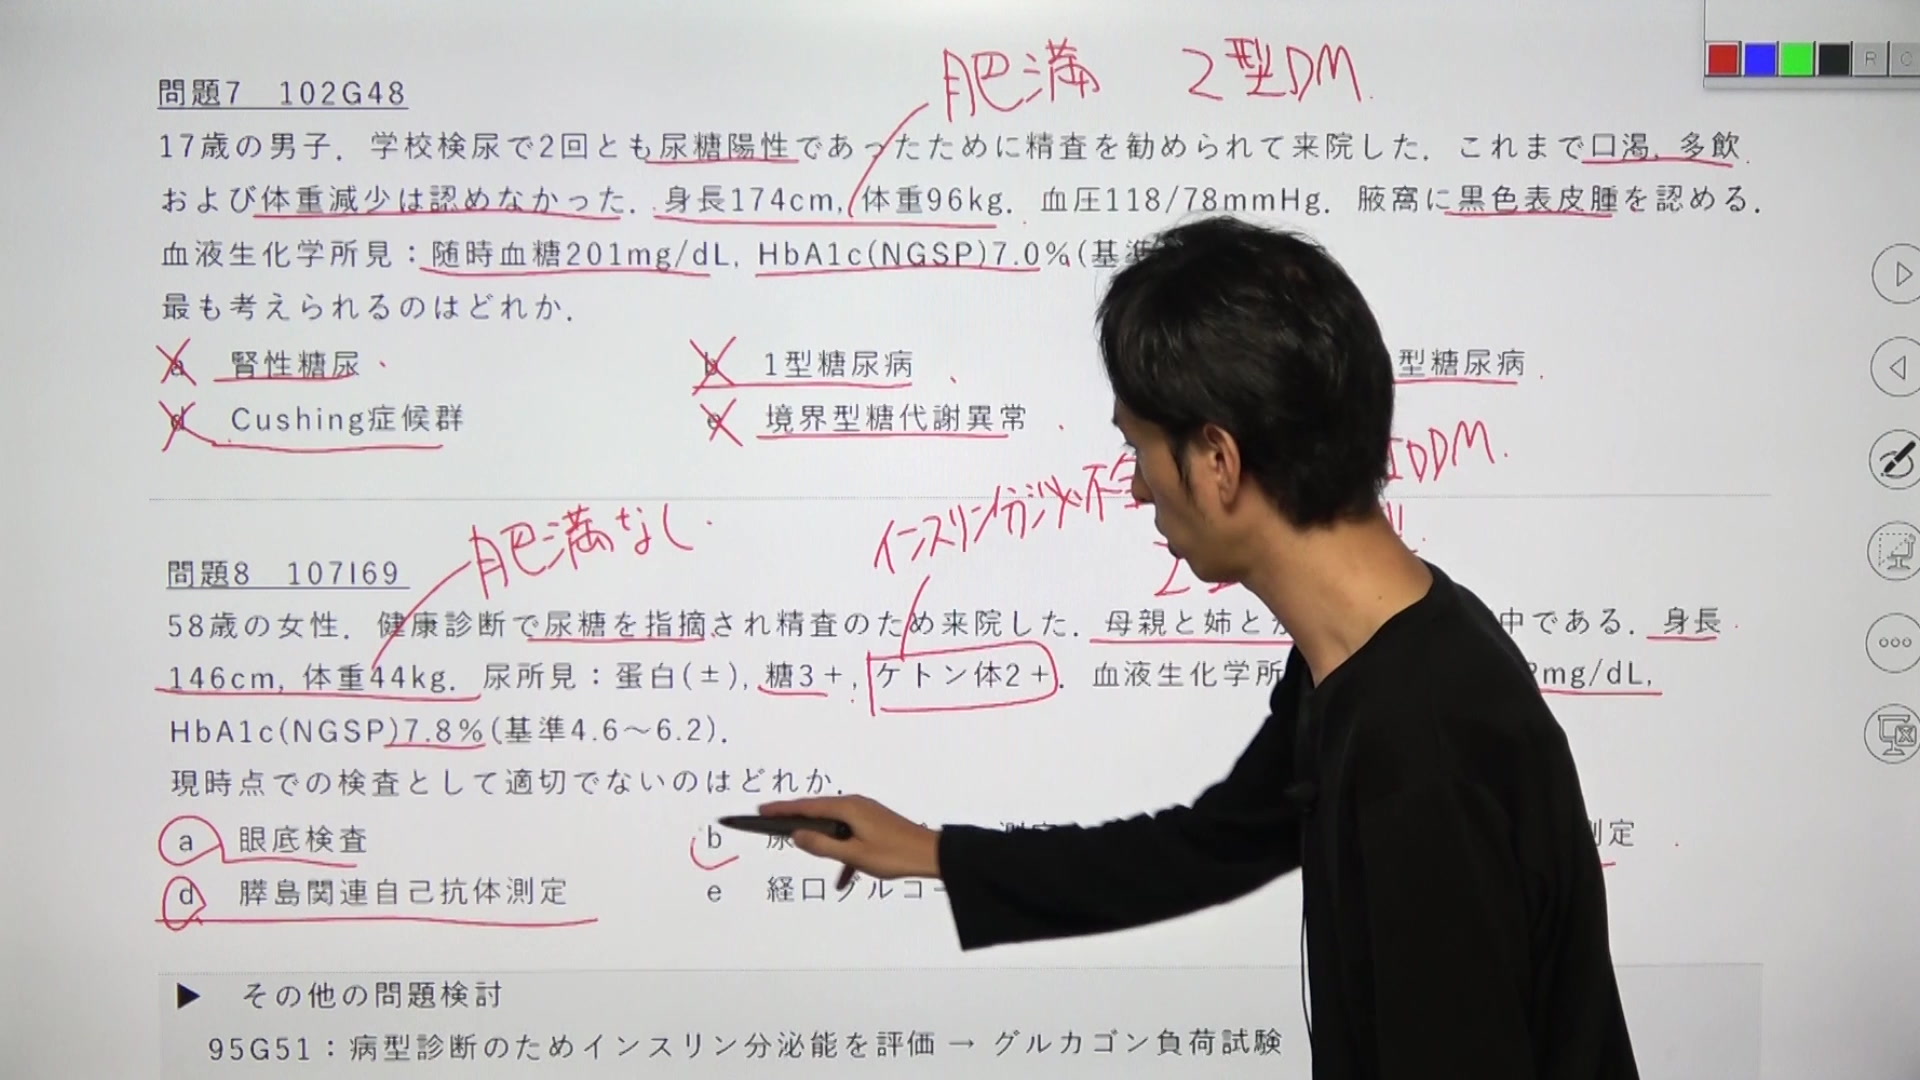 肥満 2型DM.
問題7 102G48
17歳の男子．学校検尿で2回とも尿糖陽性であったために精査を勧められて来院した．これまで口渇，多飲
および体重減少は認めなかった．身長174cm，体重96kg．血圧118/78mmHg．腋窩に黒色表皮腫を認める．
血液生化学所見：随時血糖201mg/dL，HbA1c(NGSP)7.0%(基準
最も考えられるのはどれか．
a 腎性糖尿 b 1型糖尿病 型糖尿病
d Cushing症候群 e 境界型糖代謝異常
インスリン分泌不全 IDDM.
肥満なし.
問題8 107I69
58歳の女性．健康診断で尿糖を指摘され精査のため来院した．母親と姉と 中である．身長
146cm，体重44kg．尿所見：蛋白(±)，糖3＋，ケトン体2＋．血液生化学所 mg/dL，
HbA1c(NGSP)7.8%(基準4.6〜6.2)．
現時点での検査として適切でないのはどれか．
a 眼底検査 b 尿 測定 測定
d 膵島関連自己抗体測定 e 経口グルコー
▶ その他の問題検討
95G51：病型診断のためインスリン分泌能を評価 → グルカゴン負荷試験